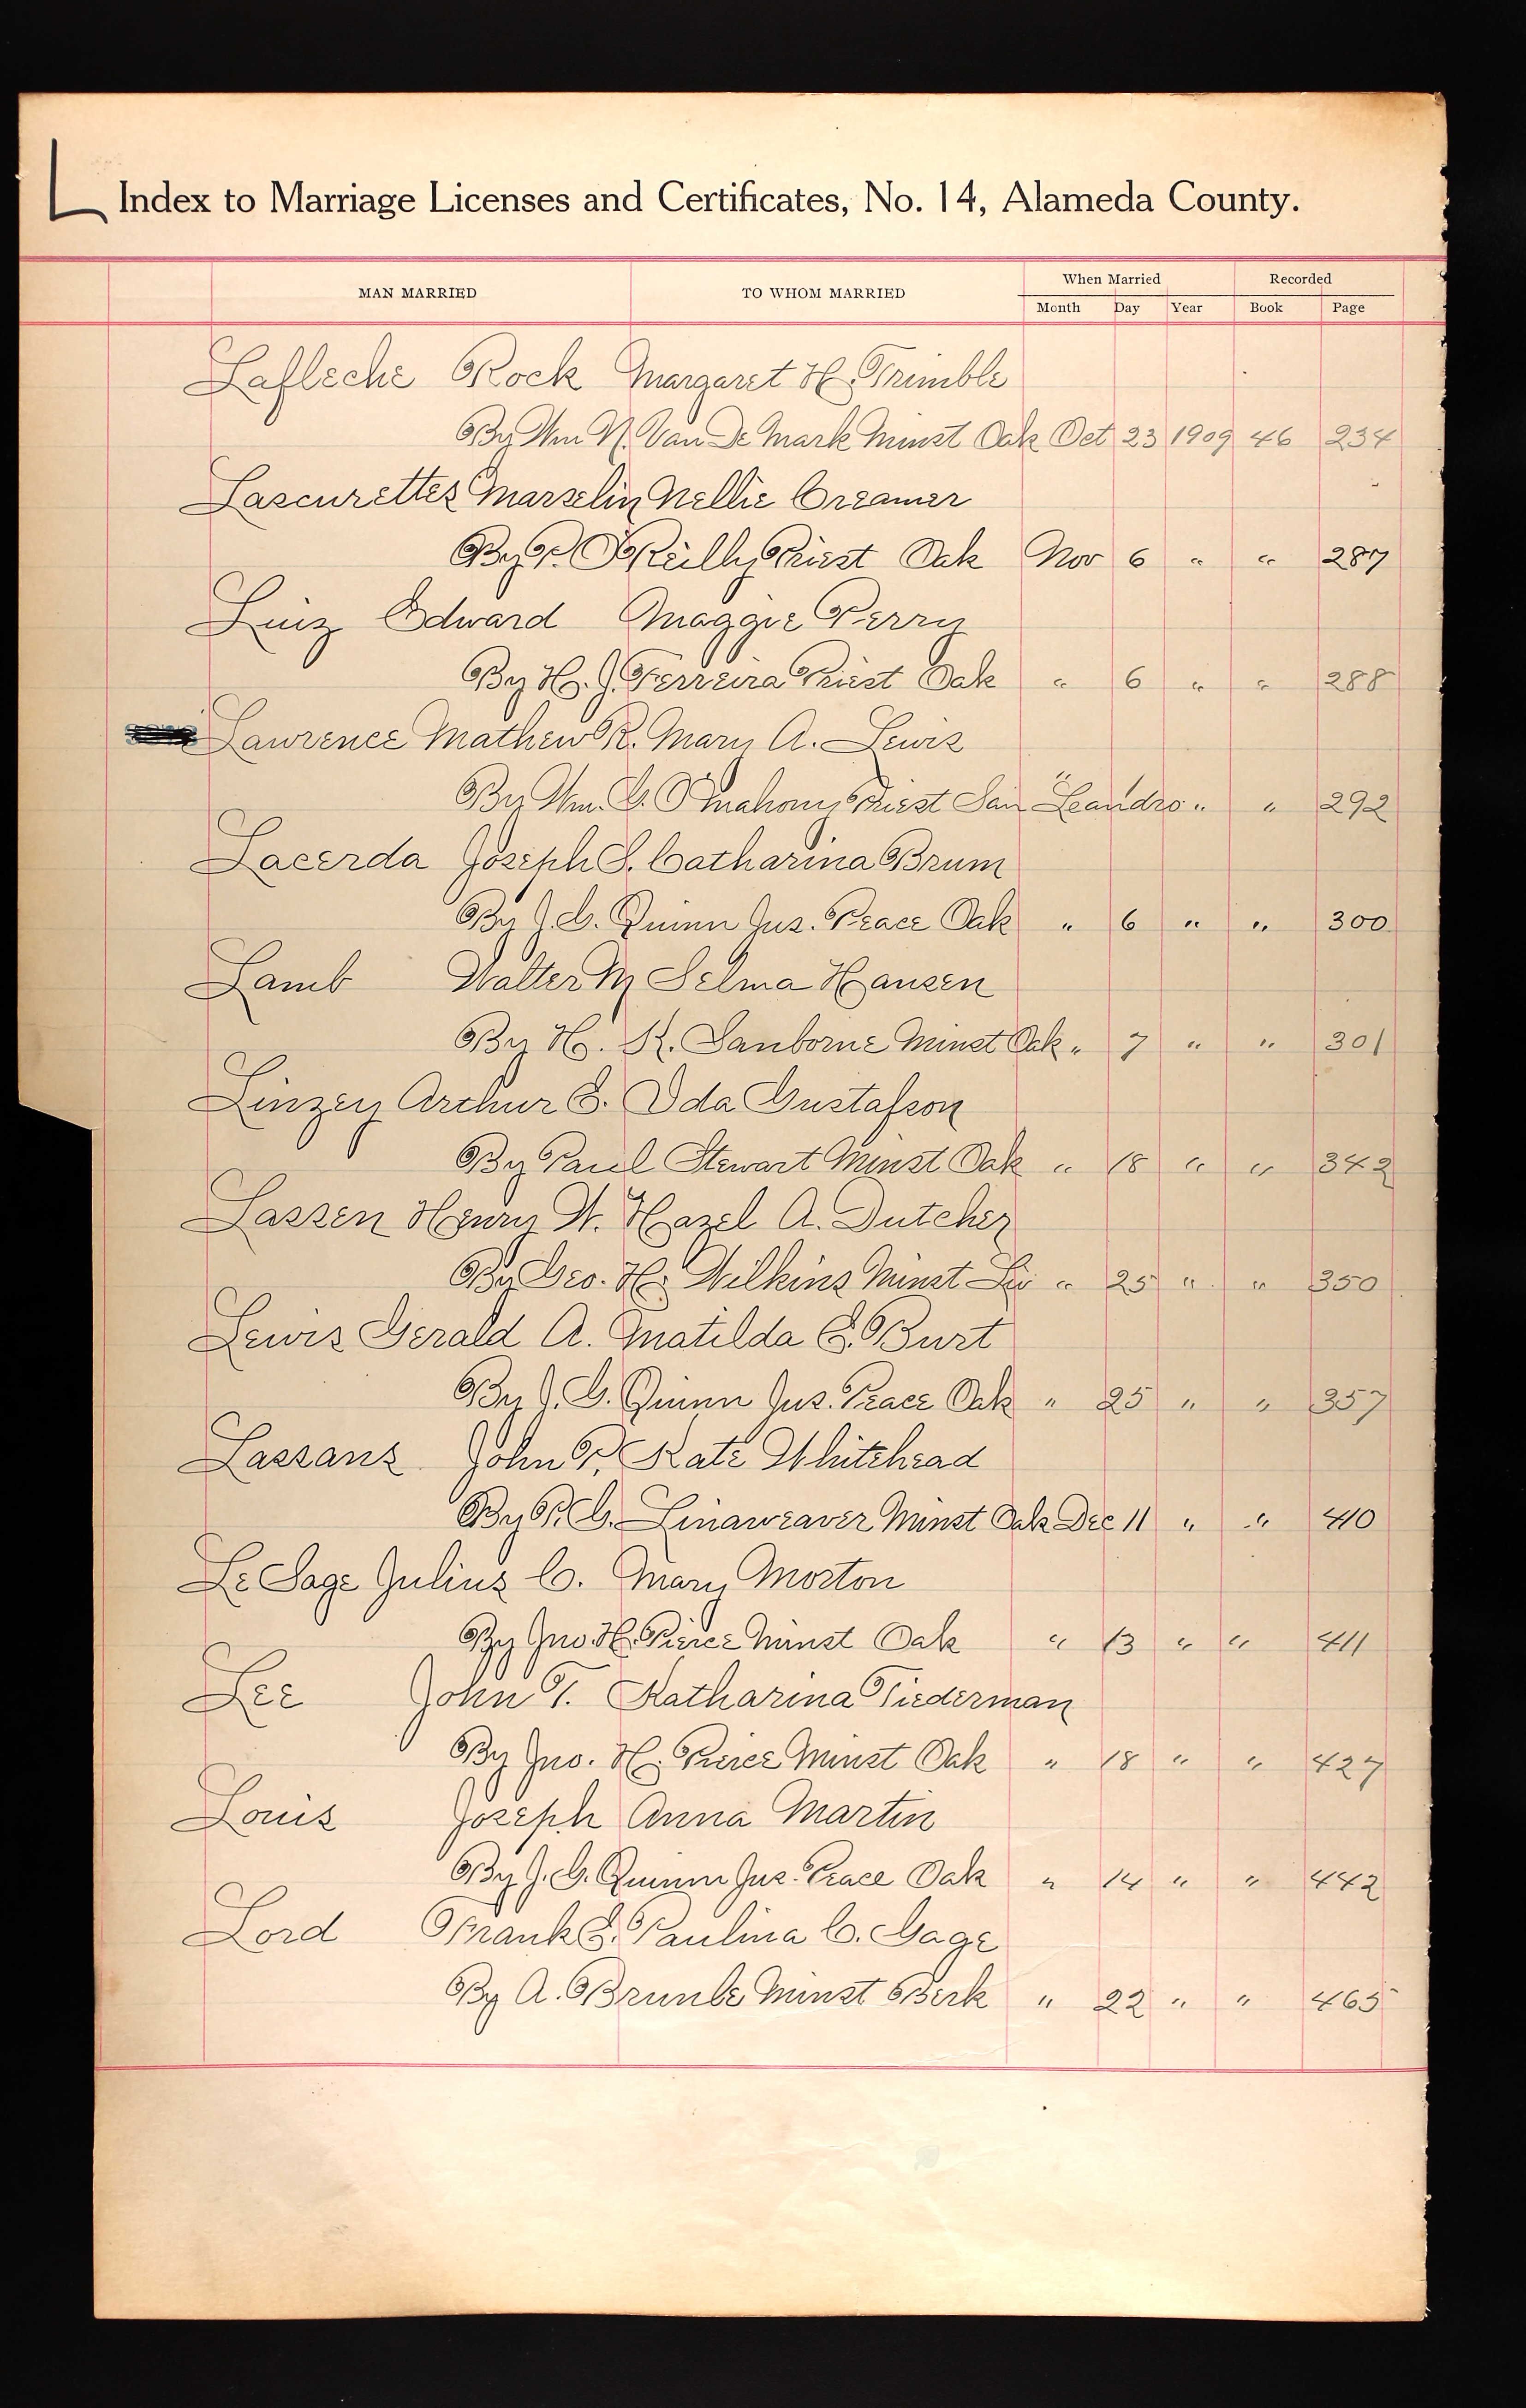 L Index to Marriage Licenses and Certificates, No. 14, Alameda County.
MAN MARRIED TO WHOM MARRIED When Married Recorded
Month Day Year Book Page
Lafleche Rock Margaret H. Trimble
By Wm N. Van De Mark Minst Oak Oct 23 1909 46 234
Lascurettes Marselin Nellie Creamer
By P. O'Reilly Priest Oak Nov 6 " " 287
Luiz Edward Maggie Perry
By H. J. Ferreira Priest Oak " 6 " " 288
Lawrence Mathew R. Mary A. Lewis
By Wm. G. O'Mahony Priest San Leandro " " " 292
Lacerda Joseph S. Catharina Brum
By J. G. Quinn Jus. Peace Oak " 6 " " 300
Lamb Walter M Selma Hansen
By H. K. Sanborne Minst Oak " 7 " " 301
Linzey Arthur E. Ida Gustafson
By Paul Stewart Minst Oak " 18 " " 342
Lassen Henry W. Hazel A. Dutcher
By Geo. H. Wilkins Minst Liv " 25 " " 350
Lewis Gerald A. Matilda E. Burt
By J. G. Quinn Jus. Peace Oak " 25 " " 357
Lassans John P. Kate Whitehead
By P. G. Linaweaver Minst Oak Dec 11 " " 410
Le Sage Julius C. Mary Morton
By Jno. H. Pierce Minst Oak " 13 " " 411
Lee John T. Katharina Tiederman
By Jno. H. Pierce Minst Oak " 18 " " 427
Louis Joseph Anna Martin
By J. G. Quinn Jus. Peace Oak " 14 " " 442
Lord Frank E. Paulina C. Gage
By A. Minst Berk " 22 " " 465